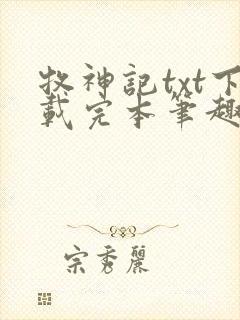 牧神記txt下
載完本筆趣
宗秀麗